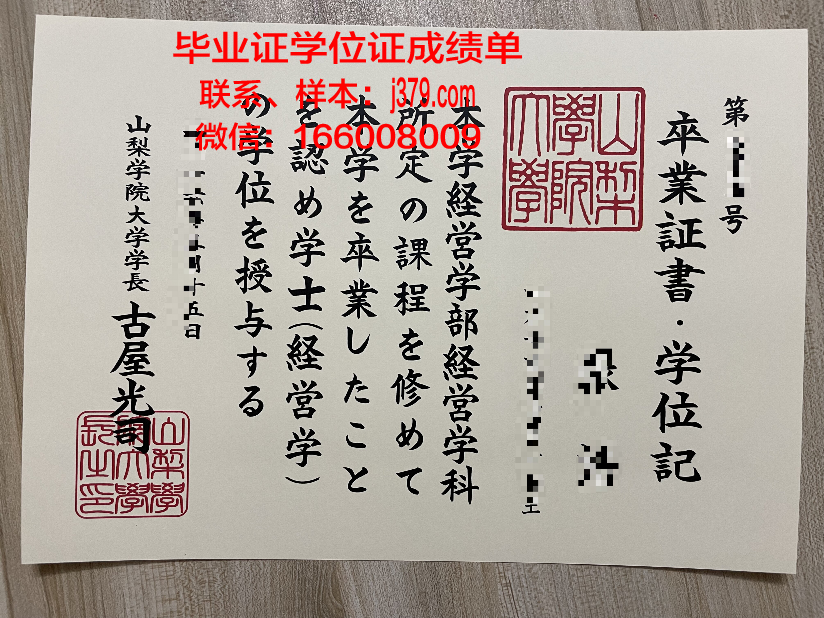 毕业证学位证成绩单
联系、样本：j379.com
微信：166008009
第
号
卒業証書・学位記
山梨
學院
大學
本学経営学部経営学科
所定の課程を修めて
本学を卒業したこと
を認め学士（経営学）
の学位を授与する
十五日
山梨学院大学学長 古屋光司
山梨學
院大學
長之印